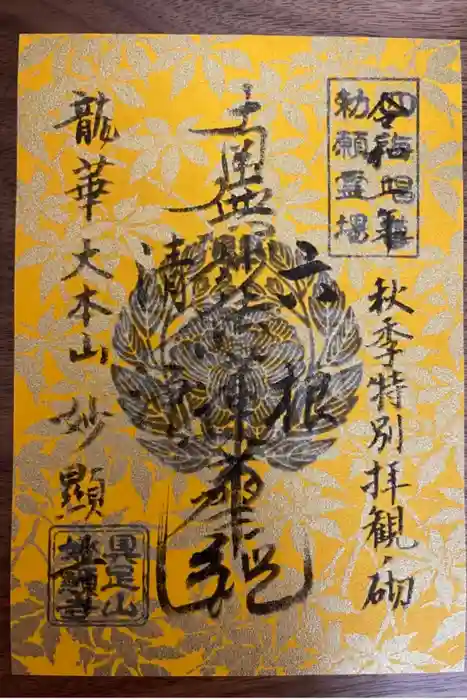 四海唱導
勅願霊場
秋季特別拝観ノ砌
六根
南無妙法蓮華経
清浄
龍華大本山 妙顯
具足山
妙顯寺